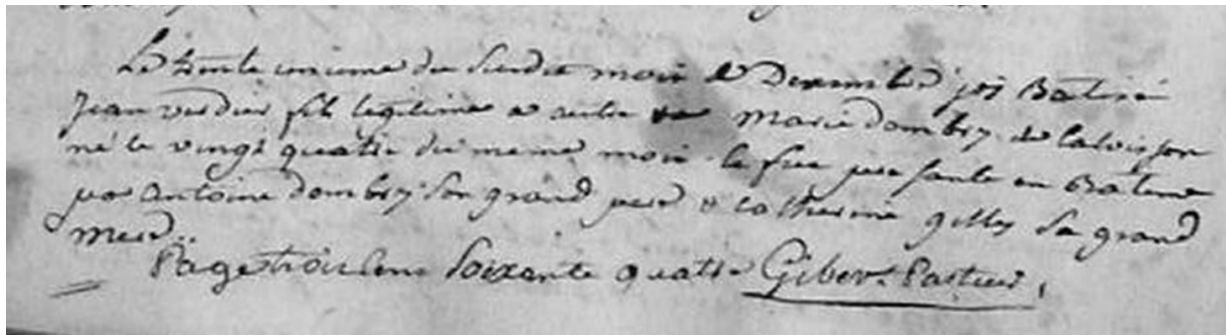 Le trente unieme du susdit mois de Decembre j'ay Batisé
Jean verdier fils legitime a autre & a marie dombry de calvisson
né le vingt quatre du meme mois la fue presenté en Bateme
par antoine dombry son grand pere & catherine gilly sa grand
mere..
Page trois cens soixante quatre Gibert Pasteur,